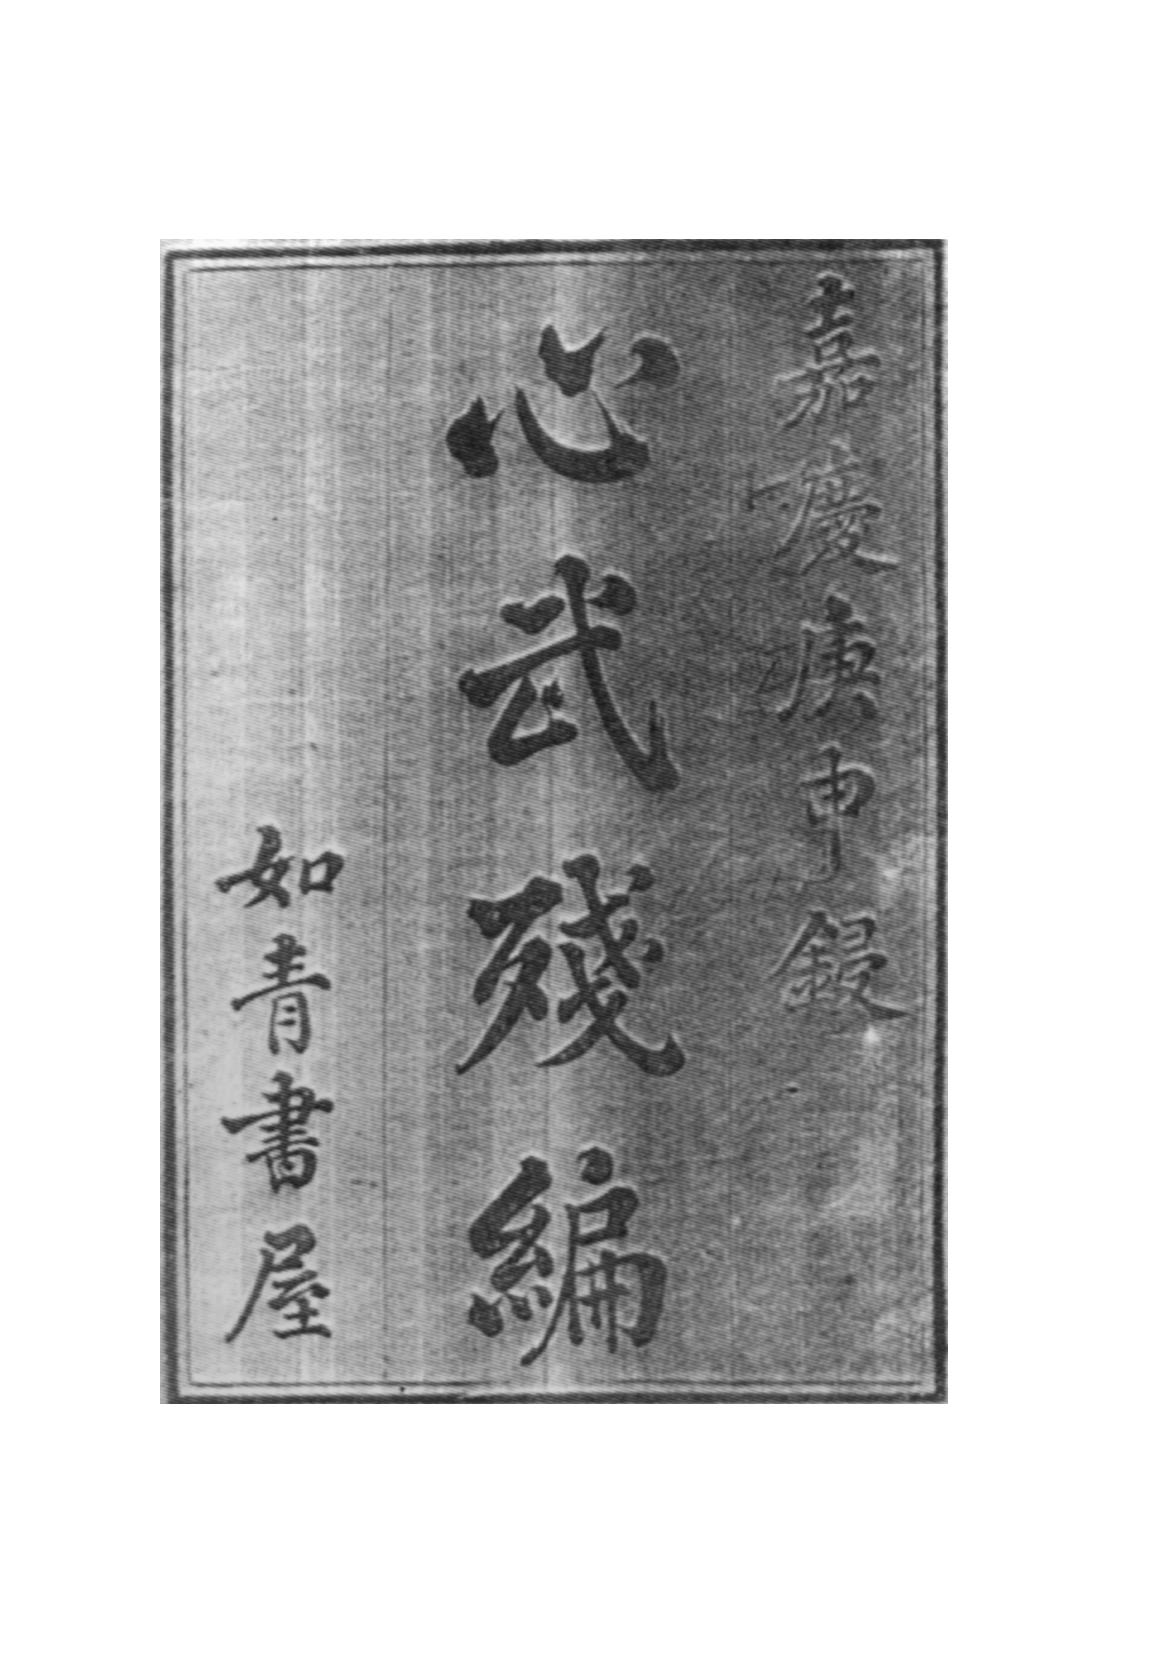 嘉慶庚申鋟
心武殘編
如青書屋